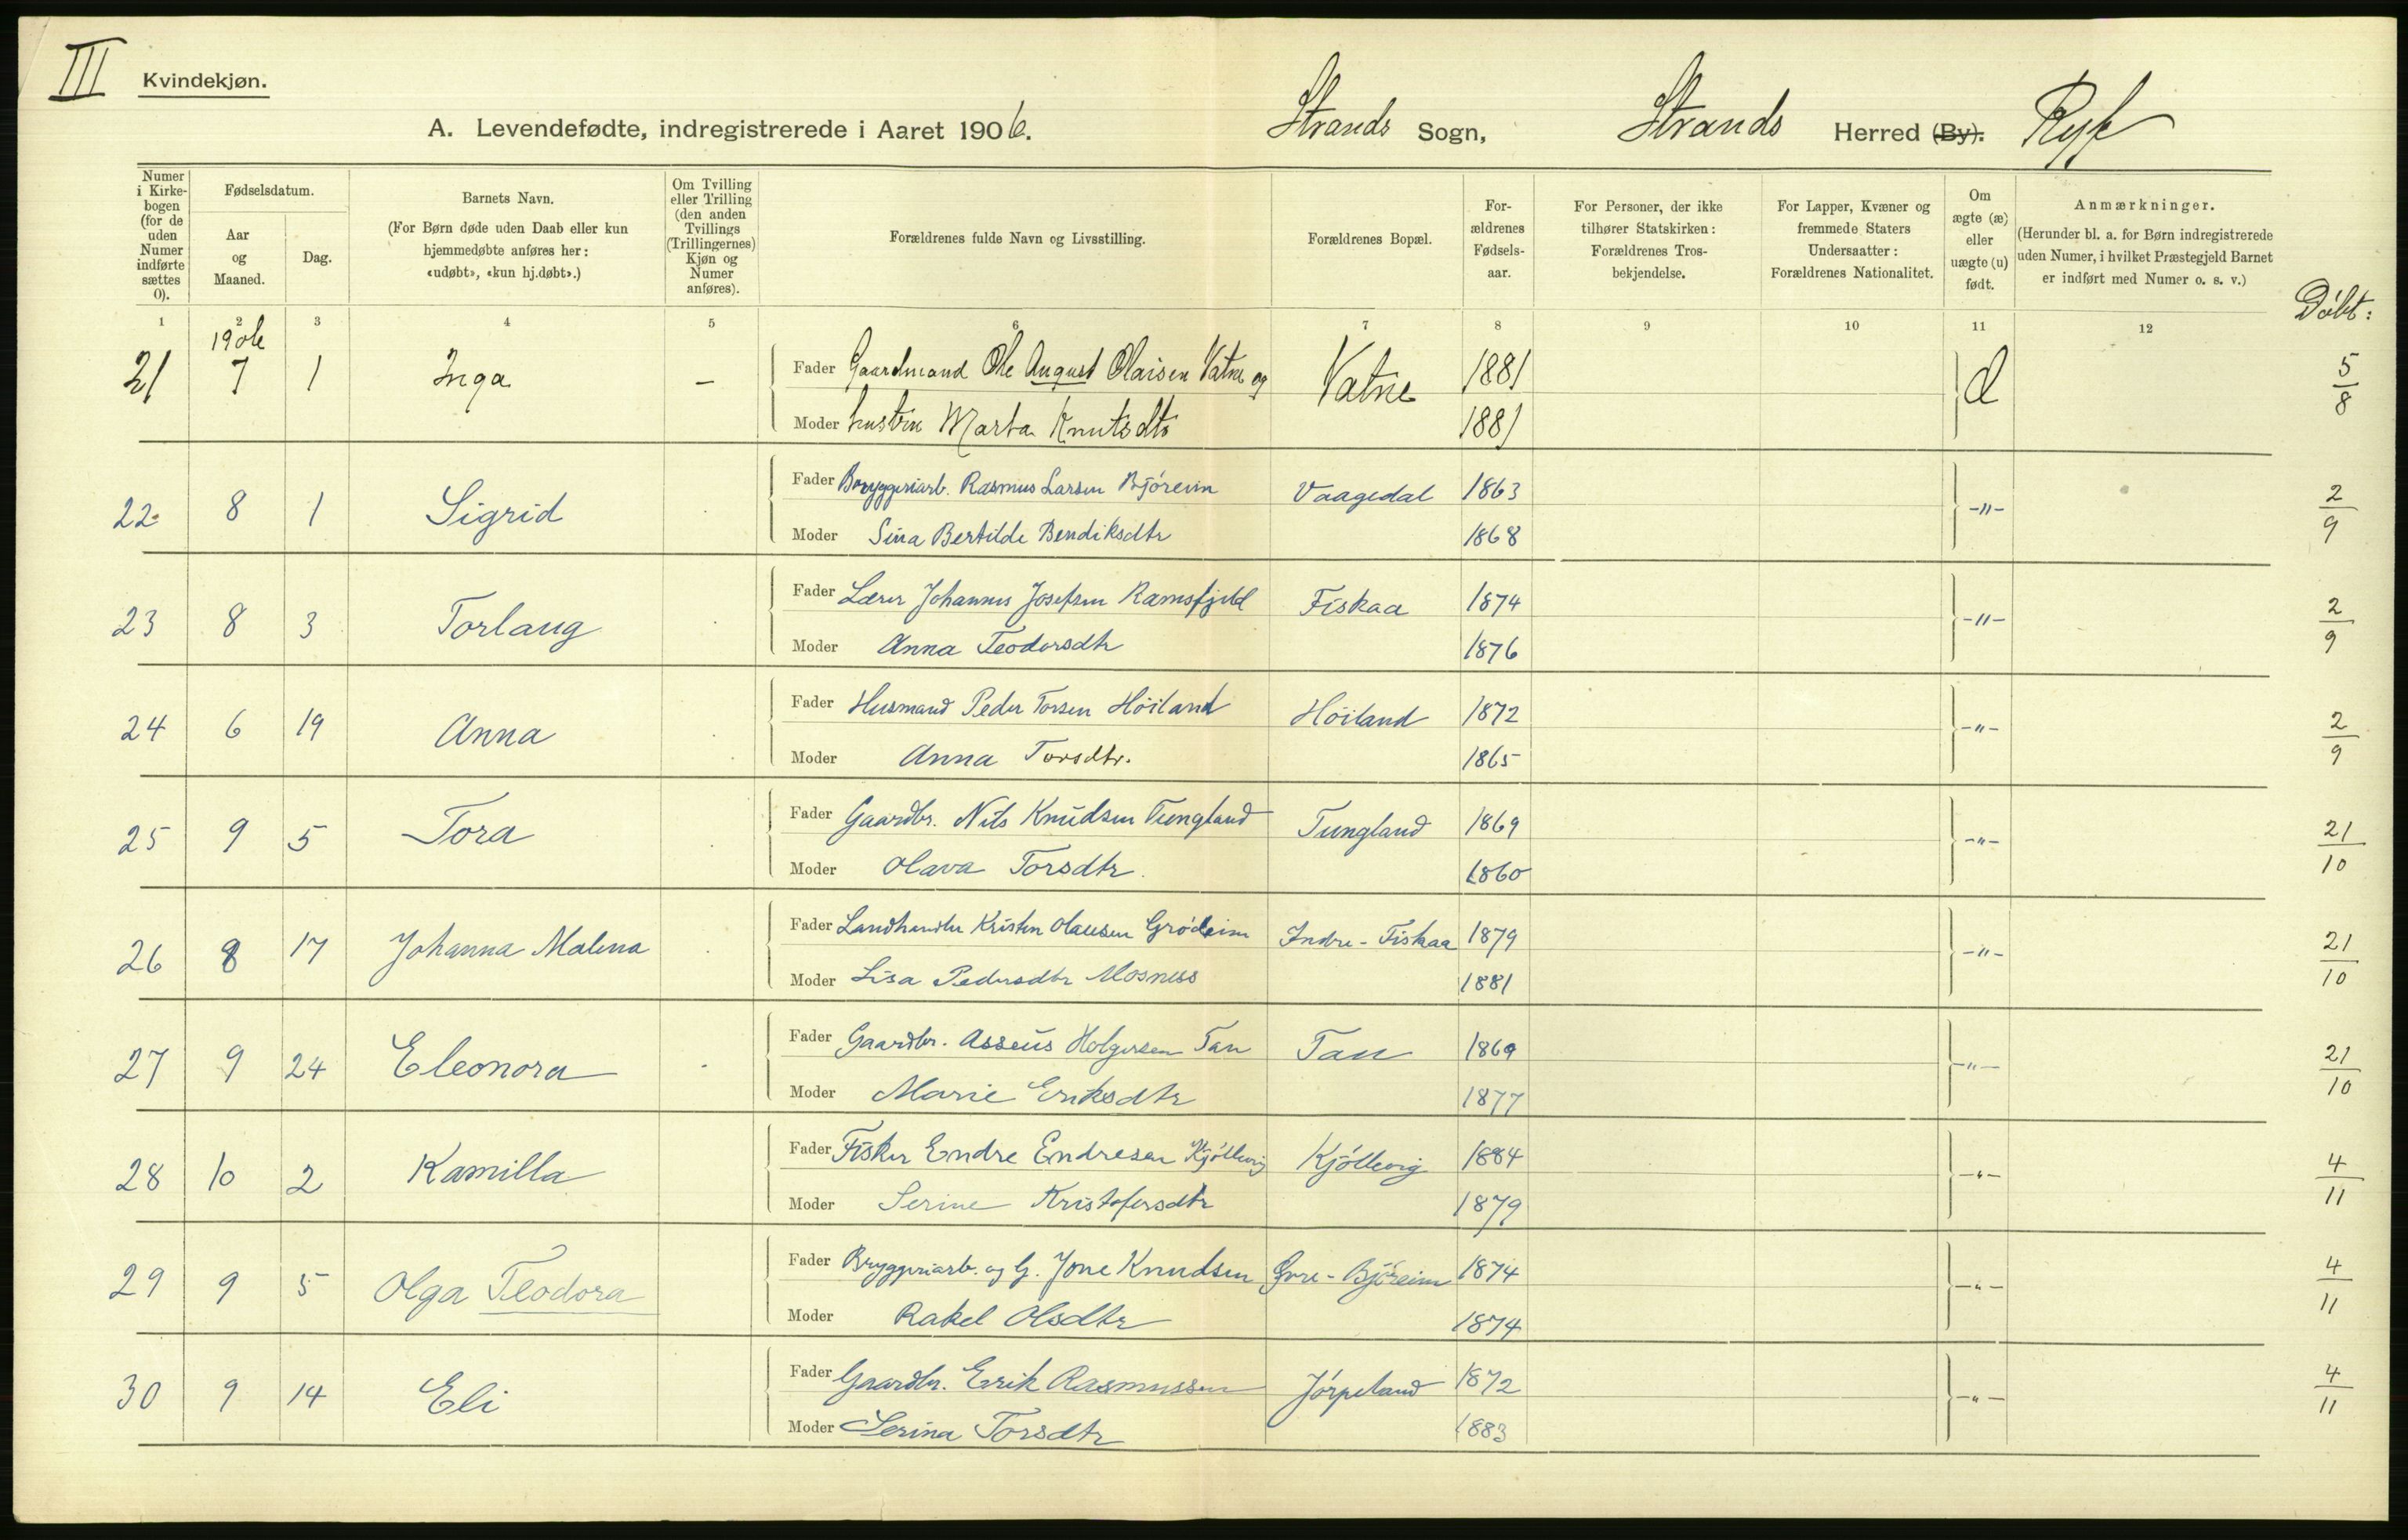 III Kvindekjøn.
A. Levendefødte, indregistrerede i Aaret 1906. Strands Sogn, Strands Herred (By). Ryf
Numer i Kirke-bogen (for de uden Numer indførte sættes 0).
Fødselsdatum.
Aar og Maaned.
Dag.
Barnets Navn.
(For Børn døde uden Daab eller kun hjemmedøbte anføres her: «udøbt», «kun hj.døbt».)
Om Tvilling eller Trilling (den anden Tvillings (Trillingernes) Kjøn og Numer anføres).
Forældrenes fulde Navn og Livsstilling.
Forældrenes Bopæl.
For-ældrenes Fødsels-aar.
For Personer, der ikke tilhører Statskirken: Forældrenes Tros-bekjendelse.
For Lapper, Kvæner og fremmede Staters Undersaatter: Forældrenes Nationalitet.
Om ægte (æ) eller uægte (u) født.
Anmærkninger.
(Herunder bl. a. for Børn indregistrerede uden Numer, i hvilket Præstegjeld Barnet er indført med Numer o. s. v.)
Døbt:
1 2 3 4 5 6 7 8 9 10 11 12
1906
21 7 1 Inga – Fader Gaardmand Ole August Olaisen Vatne og Vatne 1881 5/8
Moder hustru Marta Knutsdtr 1881
22 8 1 Sigrid Fader Bryggeriarb. Rasmus Larsen Bjøreim Vaagedal 1863 -"- 2/9
Moder Sina Bertilde Bendiksdtr 1868
23 8 3 Torlaug Fader Lærer Johannes Josefsen Ramsfjeld Fiskaa 1874 -"- 2/9
Moder Anna Teodorsdtr 1876
24 6 19 Anna Fader Husmand Peder Torsen Høiland Høiland 1872 -"- 2/9
Moder Anna Torsdtr. 1865
25 9 5 Tora Fader Gaardbr. Nils Knudsen Tungland Tungland 1869 -"- 21/10
Moder Olava Torsdtr. 1860
26 8 17 Johanna Malena Fader Landhandler Kristen Olausen Grødeim Indre-Fiskaa 1879 -"- 21/10
Moder Lisa Pedersdtr Mosness 1881
27 9 24 Eleonora Fader Gaardbr. Asseus Holgersen Tau Tau 1869 -"- 21/10
Moder Marie Eriksdtr 1877
28 10 2 Kamilla Fader Fisker Endre Endresen Kjøllevig Kjøllevig 1884 -"- 4/11
Moder Serine Kristofersdtr 1879
29 9 5 Olga Teodora Fader Bryggeriarb. og G. Jone Knudsen Øvre-Bjøreim 1874 -"- 4/11
Moder Rakel Olsdtr 1874
30 9 14 Eli Fader Gaardbr. Erik Rasmussen Jørpeland 1872 -"- 4/11
Moder Serina Torsdtr 1883